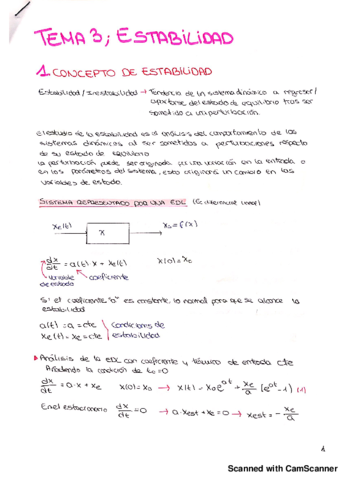 TEMA 3; ESTABILIDAD
1. CONCEPTO DE ESTABILIDAD
Estabilidad / inestabilidad → Tendencia de un sistema dinámico a regresar/
apartarse del estado de equilibrio tras ser
sometido a una perturbación.
El estudio de la estabilidad es el análisis del comportamiento de los
sistemas dinámicos al ser sometidos a perturbaciones respecto
de su estado de equilibrio
la perturbación puede ser originada por una variación en la entrada o
en los parámetros del sistema, esto originará un cambio en las
variables de estado.
SISTEMA REPRESENTADO POR UNA EDC (Ec diferencial lineal)
Xe(t) X X0 = f(x)
dx/dt = a(t) · x + Xe(t) x(0) = X0
variable coeficiente
de estado
Si el coeficiente "a" es constante, lo normal para que se alcance la
estabilidad
a(t) = a = cte Condiciones de
Xe(t) = Xe = cte estabilidad
▶ Análisis de la EDC con coeficiente y término de entrada cte
Añadiendo la condición de t0 = 0
dx/dt = a · x + xe x(0) = x0 → x(t) = x0 e^at + xe/a (e^at - 1) (1)
En el estacionario dx/dt = 0 → a · xest + xe = 0 → xest = - xe/a
1
Scanned with CamScanner